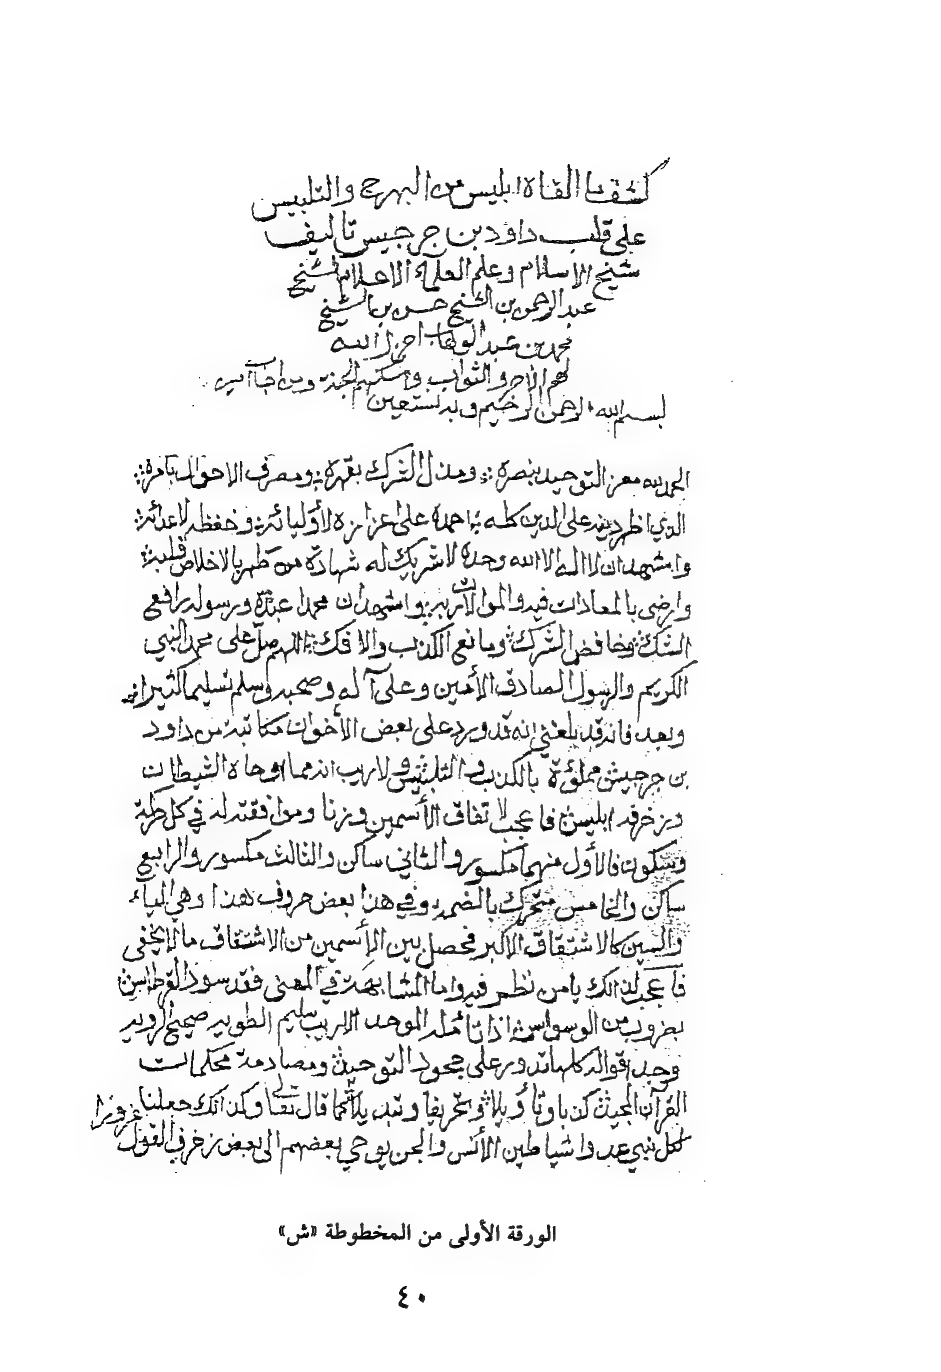 كشف ما القاه ابليس من البهرج والتلبيس
على قلب داود بن جرجيس تاليف
شيخ الاسلام وعلم العلماء الاعلام الشيخ
عبد الرحمن بن الشيخ حسن بن الشيخ
محمد بن عبد الوهاب اجزل الله
لهم الاجر والثواب واسكنهم الجنة آمين
بسم الله الرحمن الرحيم وبه نستعين
الحمد لله معز التوحيد بنصره ومذل الشرك بقهره ومصرف الاحوال بامره
الذي اظهر دينه على الدين كله احمده على اعزازه لأوليائه وخفظه لاعدائه
واشهد ان لا اله الا الله وحده لا شريك له شهادة من طهر بالاخلاص قلبه
وارضى بالمعادات فيه والموالات ربه واشهد ان محمدا عبده ورسوله رافع
الشك وخافض الشرك ومانع الكذب والافك اللهم صل على محمد النبي
الكريم والرسول الصادق الأمين وعلى آله وصحبه وسلم تسليما كثيرا
وبعد فانه قد بلغني انه قد ورد على بعض الأخوان مكاتبة من داود
بن جرجيش مملؤة بالكذب والتلبيس ولا ريب انه مما اوحاه الشيطان
وزخرفه ابليس فاعجب لا تفاق الأسمين وزنا وموافقته له في كل حركة
وسكون فالأول منهما مكسور والثاني ساكن والثالث مكسور والرابع
ساكن والخامس متحرك بالضمة وفي هذا بعض حروف هذا وهي الياء
والسين كالاشتقاق الأكبر فحصل بين الأسمين من الاشتقاق ما لا يخفى
فاعجب لذالك يا من نظر فيه واما المشابهة في المعنى فقد سود القرطاس
بضروب من الوسواس اذا تأمله الموحد الاريب سليم الطوية صحيح الروية
وجد اقواله كلها تدور على جحود التوحيد ومصادمة محكمات
القرآن المجيد كذبا وتأويلا وتحريفا وتبديلا كما قال تعالى وكذالك جعلنا
لكل نبي عدوا شياطين الأنس والجن يوحي بعضهم الى بعض زخرف القول غرورا
الورقة الأولى من المخطوطة «ش»
٤٠